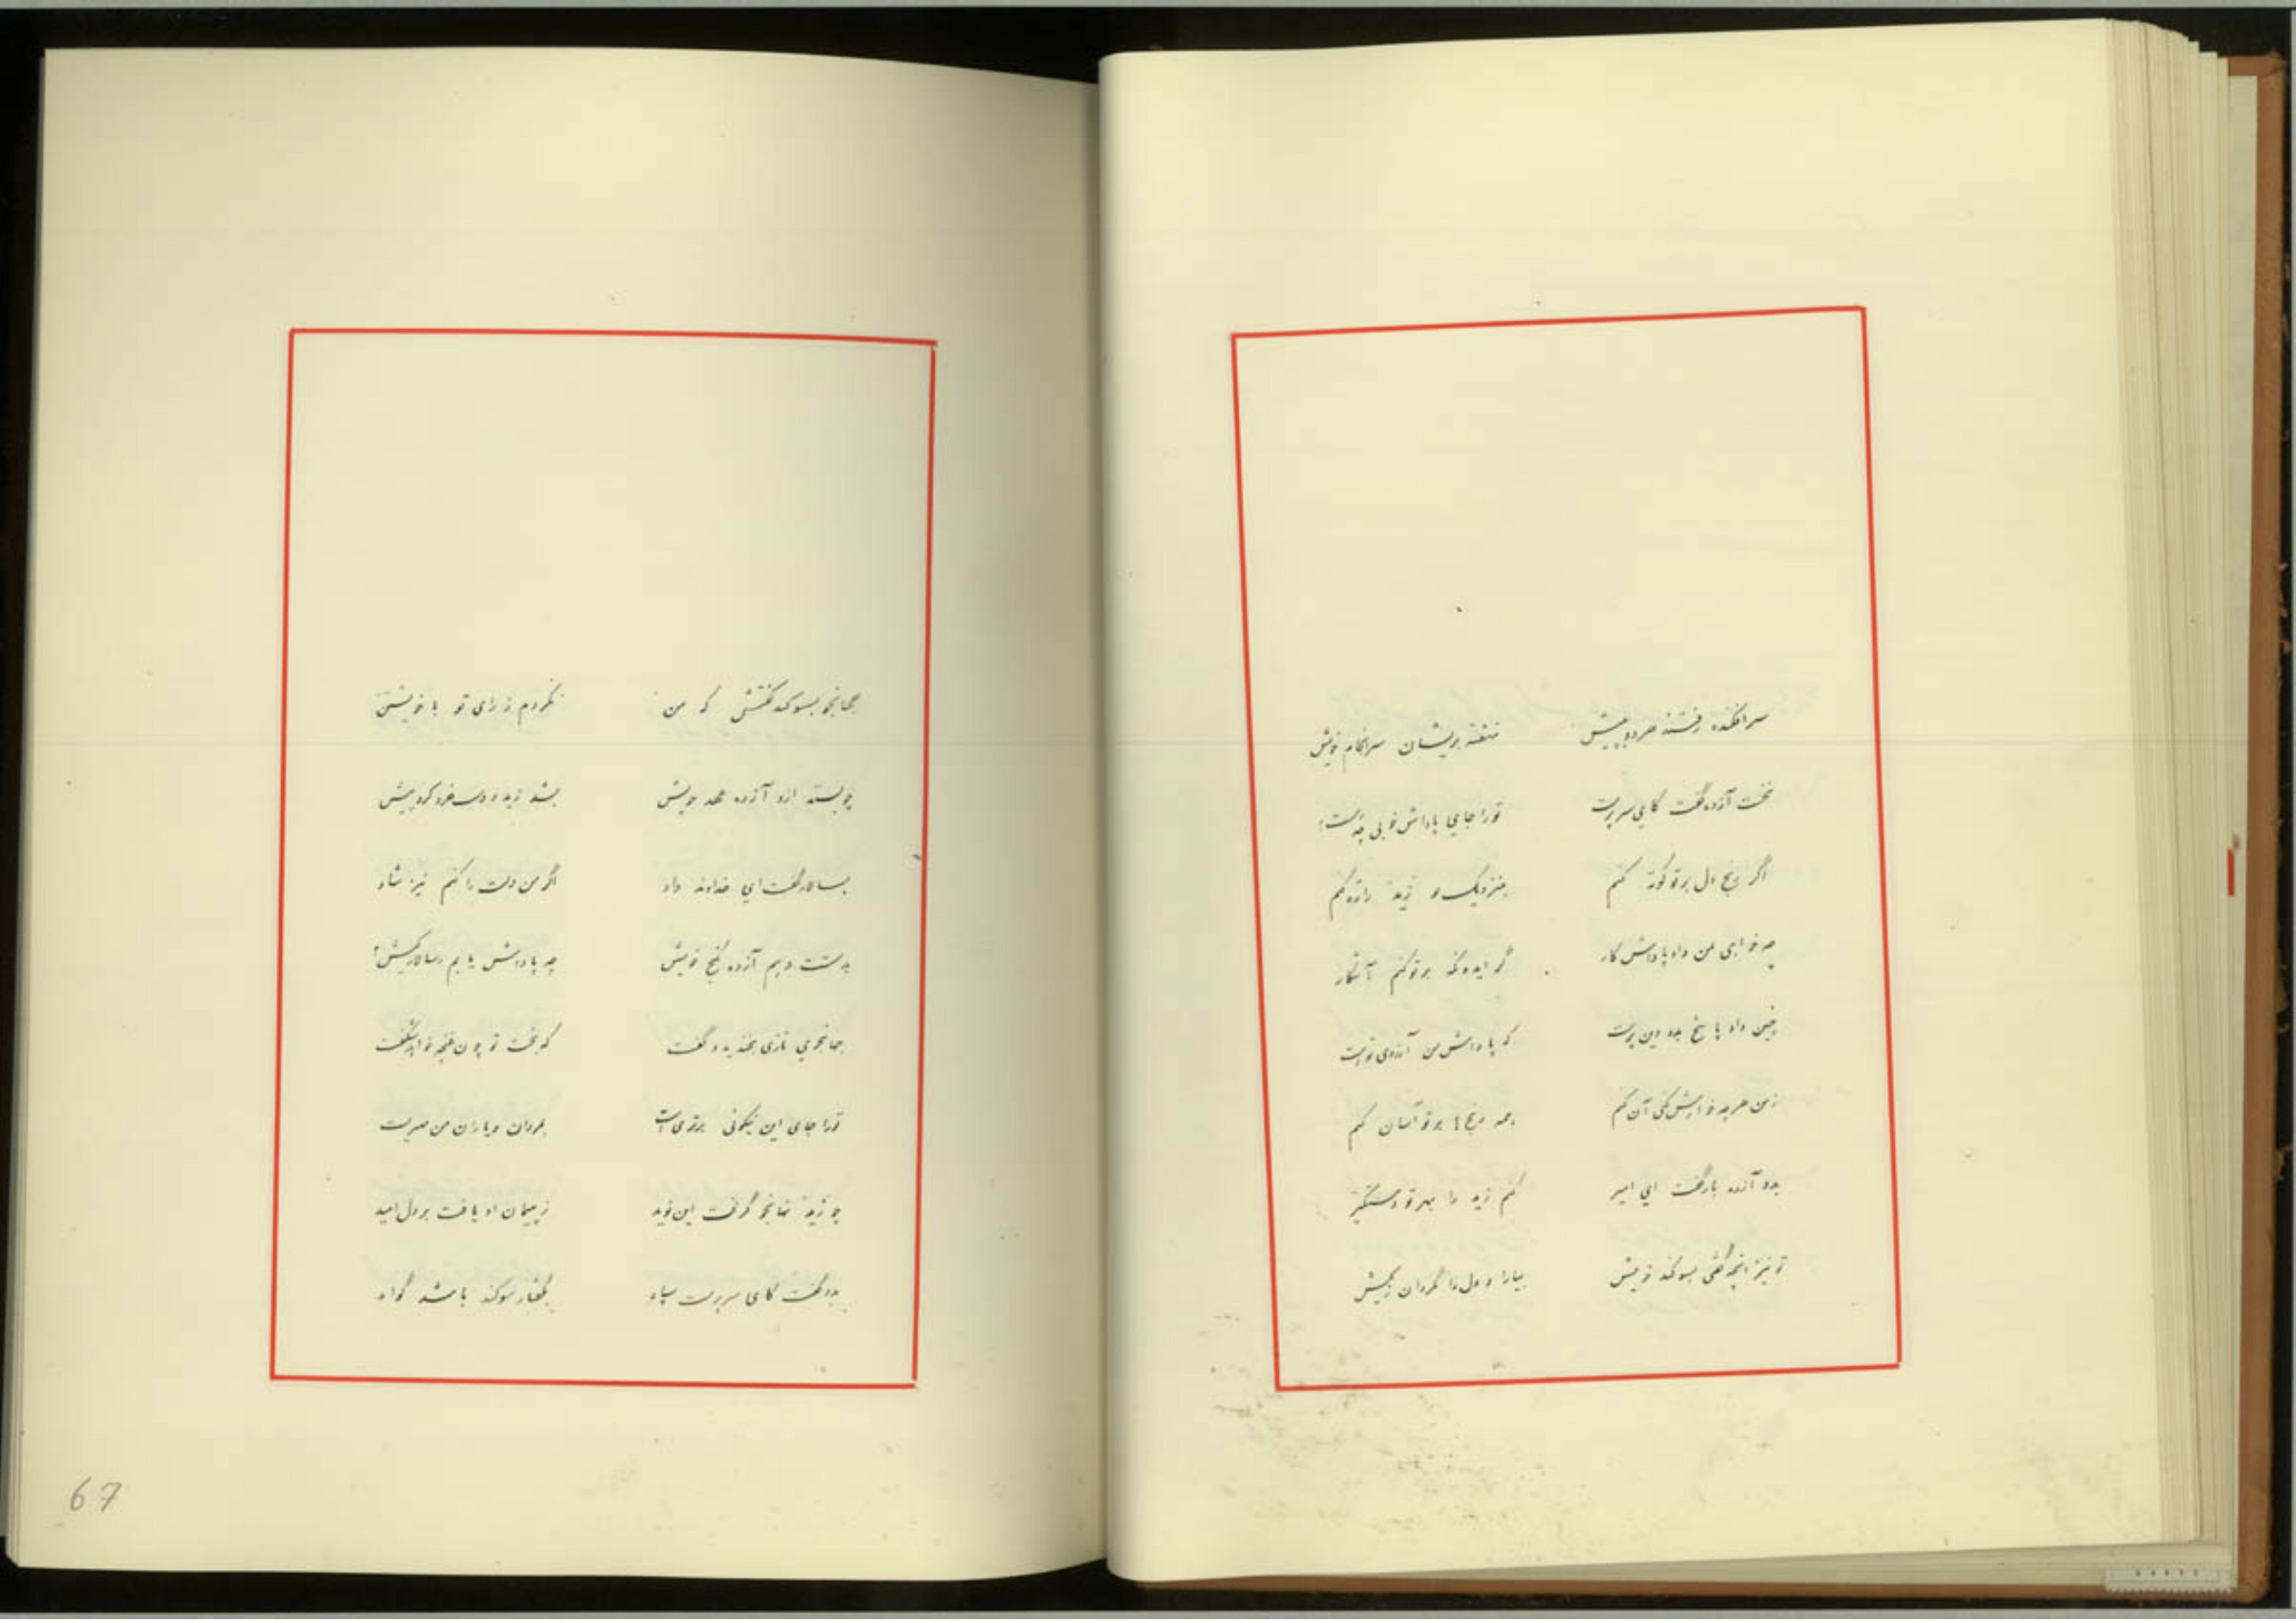 سرافکنده رفتند هر دو به پیش نهفته بریشان سرانجام خویش
نخست آزده گفت کای سرپرست تو را جای پاداش خوبی چه است؟
اگر رنج دل بر تو کوته کنم بنزدیک و زید را ته کنم
چه خواهی بمن داد پاداش کار گر ایدونکه بر تو کنم آشکار
چنین داد پاسخ بدو دین پرست که پاداش من آرزوی تو است
زمن هرچه خواهش کنی آن کنم همه رنجها بر تو آسان کنم
بدو آزده باز گفت ای امیر کنم زید را بهر تو دستگیر
تو نیز آنچه گفتی بسوگند خویش بیارا و دل را مگردان ز کیش
جهانجو بسوگند گفتش که من نگردم ز رای تو با خویشتن
چو بستد ازو آزده عهد خویش بشد زید و دست خرد کرد پیش
بسالار گفت ای خداوند داد اگر من دلت را کنم نیز شاد
بدستت دهم آزده گنج خویش چه پاداش یابم ز سالار کیش؟
جهانجوی تازی بخندید و گفت که بخت تو چون غنچه خواهد شگفت
تو را جای این نیکوئی برتری است بمردان و یاران من سریست
چو زید جهانجو گرفت این نوید ز پیمان او یافت بر دل امید
بدو گفت کای سرپرست سپاه بگفتار سوگند باشد گواه
67